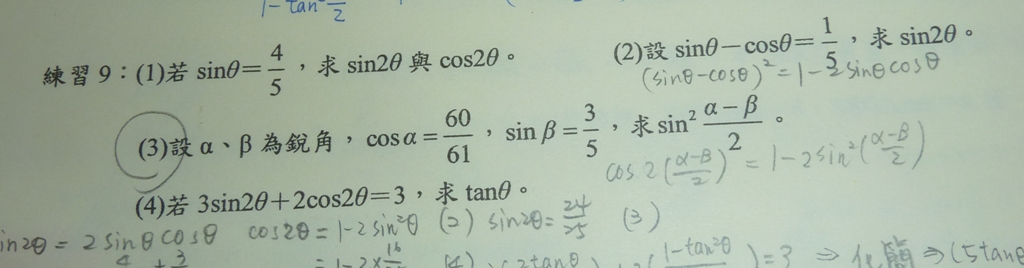 1-tan²
2
練習9：(1)若 sinθ=4/5，求 sin2θ 與 cos2θ。 (2)設 sinθ-cosθ=1/5，求 sin2θ。
(sinθ-cosθ)²=1-2sinθcosθ
(3)設 α、β 為銳角，cosα=60/61，sinβ=3/5，求 sin² (α-β)/2。
cos2((α-β)/2)=1-2sin²((α-β)/2)
(4)若 3sin2θ+2cos2θ=3，求 tanθ。
in2θ=2sinθcosθ cos2θ=1-2sin²θ (2) sin2θ=24/25 (3)
=1-2× (1-tan²θ )=3 ⇒ 化簡 ⇒ (5tanθ